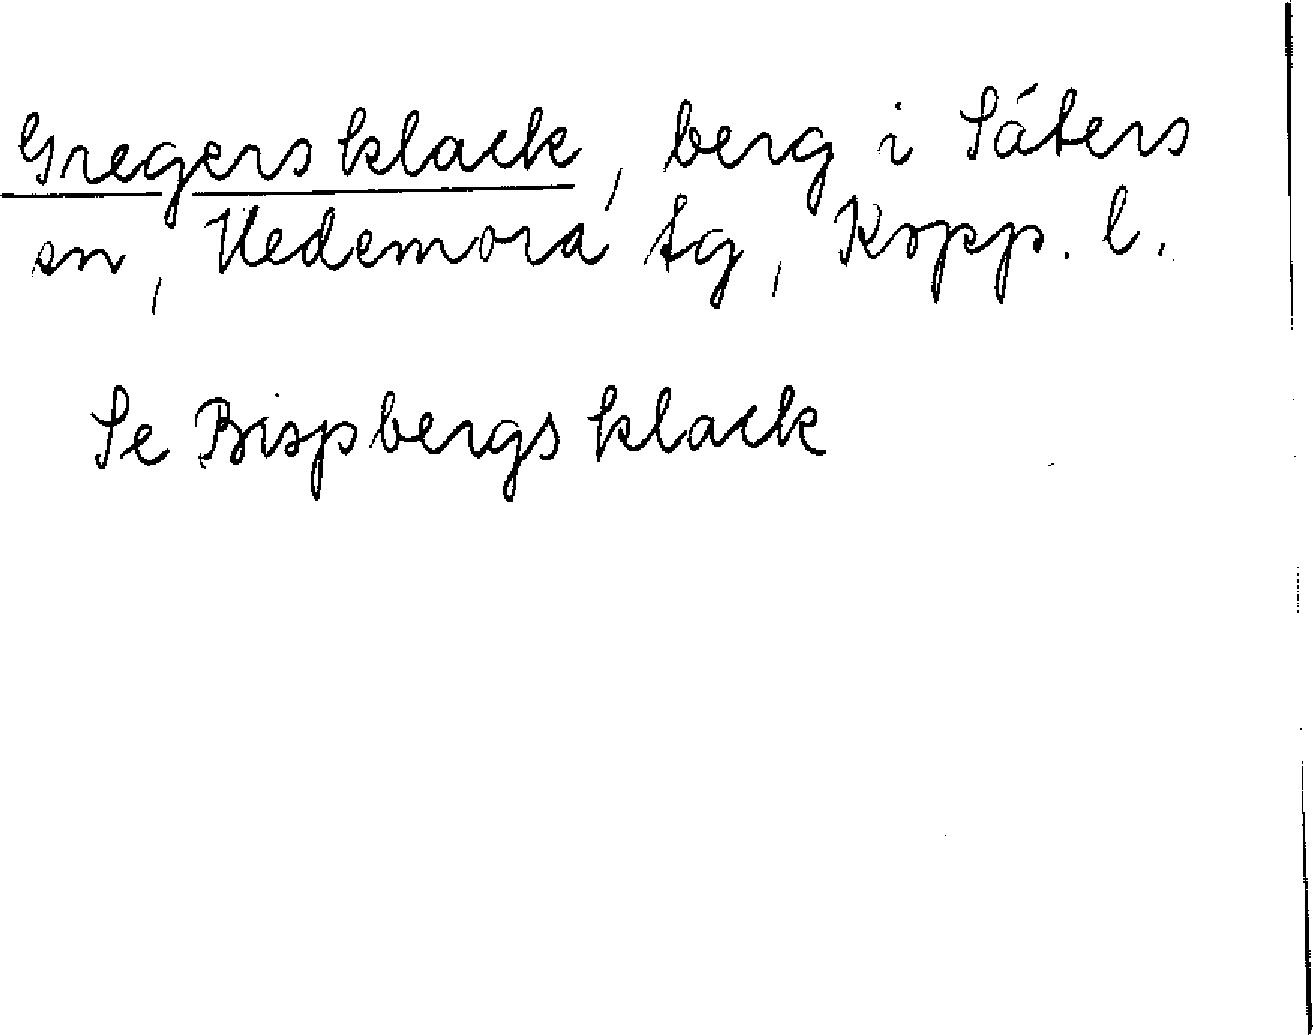 Gregers klack, berg i Säters
sn, Hedemora tg, Kopp. l.
Se Bispbergs klack